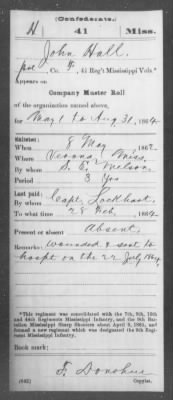 (Confederate.)
H 41 Miss.
John Hall.
Pvt., Co. H, 41 Reg't Mississippi Vols.*
Appears on
Company Muster Roll
of the organization named above,
for May 1 to Aug 31, 1864.
Enlisted:
When 8 May, 1862.
Where Verona, Miss.
By whom S. E. Nelson.
Period 3 Yrs
Last paid:
By whom Capt. Lockhart.
To what time 28 Feb, 1864.
Present or absent Absent.
Remarks: wounded & sent to
hospt on the 22 July 1864.
*This regiment was consolidated with the 7th, 9th, 10th
and 44th Regiments Mississippi Infantry, and the 9th Bat-
talion Mississippi Sharp Shooters about April 9, 1865, and
formed a new regiment which was designated the 9th Regi-
ment Mississippi Infantry.
Book mark:
F. Donohue
(642) Copyist.